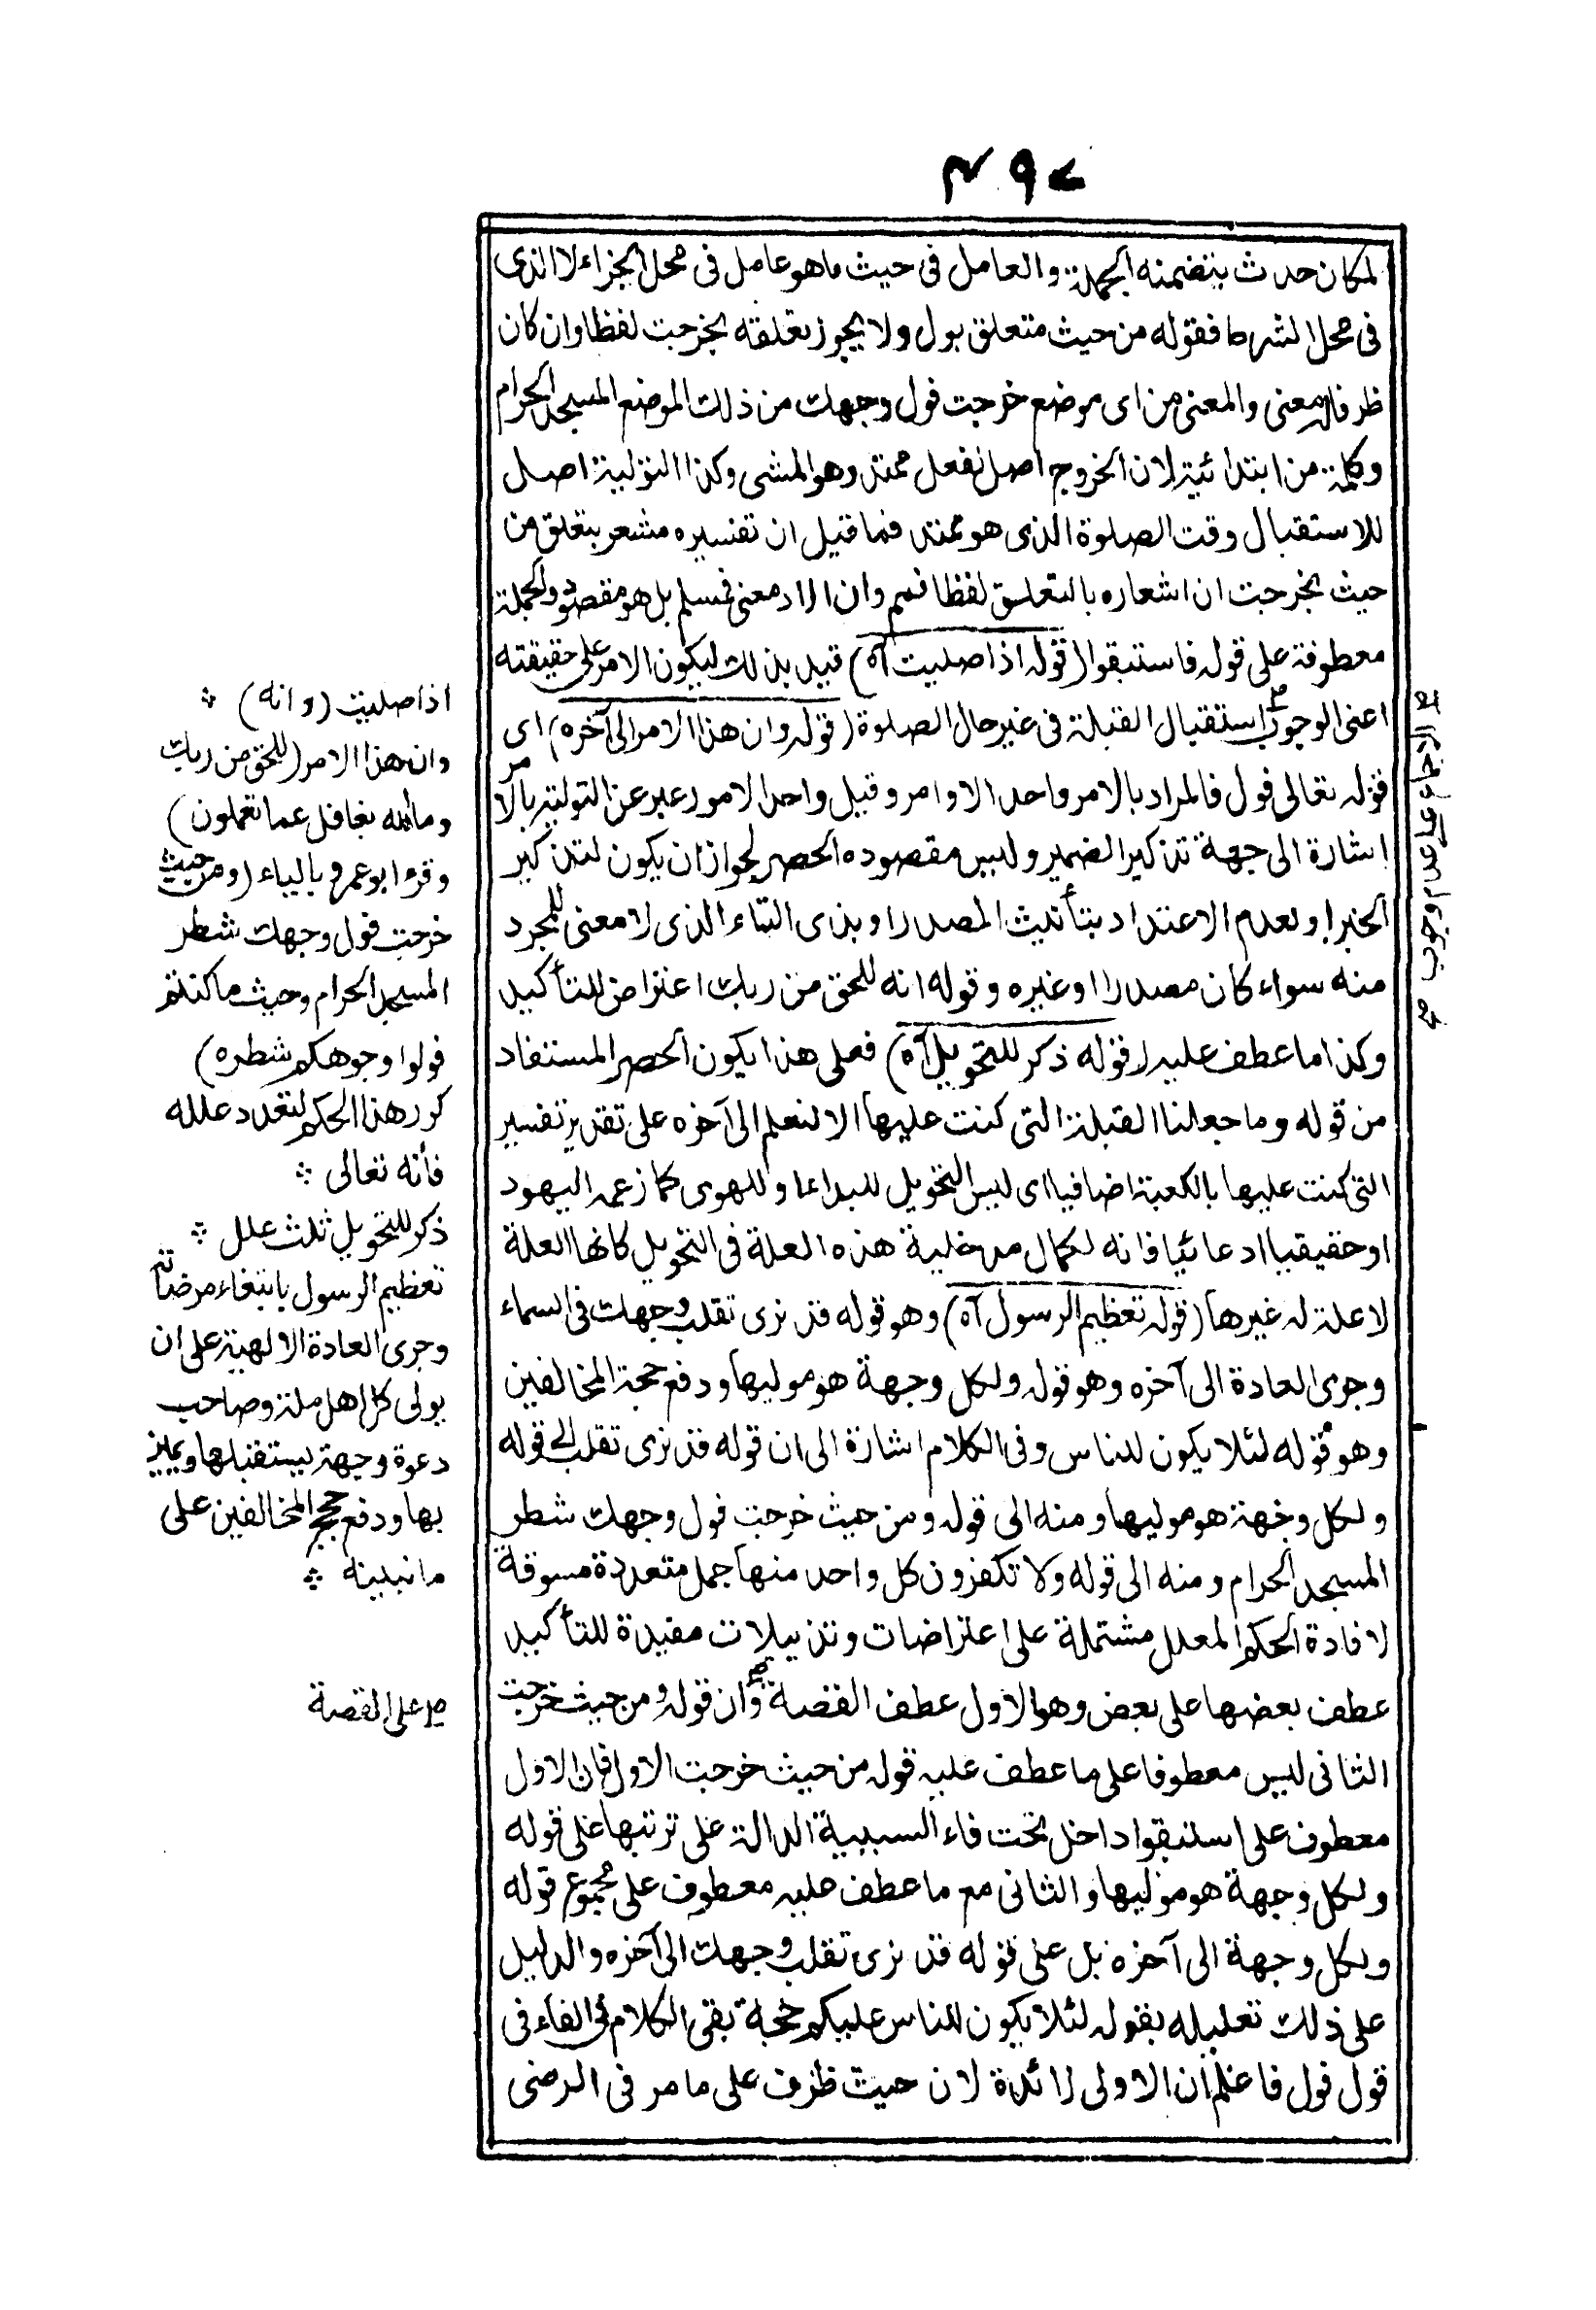 ٤٩٧
لمكان حدث يتضمنه الجملة والعامل فى حيث ما هو عامل فى محل الجزاء لا الذى
فى محل الشرط فقوله من حيث متعلق بول ولا يجوز تعلقه بخرجت لفظا وان كان
ظرفاله معنى والمعنى من اى موضع خرجت فول وجهك من ذلك الموضع المسجد الحرام
وكلمة من ابتدائية لان الخروج اصل لفعل ممتد وهو المشى وكذا التولية اصل
للاستقبال وقت الصلوة الذى هو ممتد فما قيل ان تفسيره مشعر بتعلق من
حيث بخرجت ان اشعاره بالتعلق لفظا فمم وان اراد معنى فمسلم بل هو مقصود والجملة
معطوفة على قوله فاستبقوا (قوله اذا صليت آه) قيد بذلك ليكون الامر على حقيقته
اعنى الوجوب استقبال القبلة فى غير حال الصلوة (قوله وان هذا الامر الى آخره) اى
قوله تعالى فول فالمراد بالامر واحد الاوامر وقيل واحد الامور عبر عن التولية بالامر
اشارة الى جهة تذكير الضمير وليس مقصوده الحصر لجواز ان يكون لتذكير
الخبر او لعدم الاعتداد بتأنيث المصدر او بذى التاء الذى لا معنى للمجرد
منه سواء كان مصدرا او غيره وقوله انه للحق من ربك اعتراض للتأكيد
وكذا ما عطف عليه (قوله ذكر للتحويل آه) فعلى هذا يكون الحصر المستفاد
من قوله وما جعلنا القبلة التى كنت عليها الا لنعلم الى آخره على تقدير تفسير
التى كنت عليها بالكعبة اضافيا اى ليس التحويل للبداء او للهوى كما زعمه اليهود
او حقيقيا ادعائيا فانه لكمال مدخلية هذه العلة فى التحويل كانها العلة
لا علة له غيرها (قوله تعظيم الرسول آه) وهو قوله قد نرى تقلب وجهك فى السماء
وجرى العادة الى آخره وهو قوله ولكل وجهة هو موليها ودفع حجة المخالفين
وهو قوله لئلا يكون للناس وفى الكلام اشارة الى ان قوله قد نرى تقلب الى قوله
ولكل وجهة هو موليها ومنه الى قوله ومن حيث خرجت فول وجهك شطر
المسجد الحرام ومنه الى قوله ولا تكفرون كل واحد منها جمل متعددة مسوقة
لافادة الحكم المعلل مشتملة على اعتراضات وتذييلات مفيدة للتأكيد
عطف بعضها على بعض وهو الاول عطف القصة وان قوله ومن حيث خرجت
الثانى ليس معطوفا على ما عطف عليه قوله من حيث خرجت الاول فان الاول
معطوف على استبقوا داخل تحت فاء السببية الدالة على ترتبها على قوله
ولكل وجهة هو موليها والثانى مع ما عطف عليه معطوف على مجموع قوله
ولكل وجهة الى آخره بل على قوله قد نرى تقلب وجهك الى آخره والدليل
على ذلك تعليله بقوله لئلا يكون للناس عليكم حجة بقى الكلام فى الفاء فى
قول فول فاعلم ان الاولى زائدة لان حيث ظرف على ما مر فى الرضى
اذا صليت (وانه)
وان هذا الامر (للحق من ربك
وما الله بغافل عما تعملون)
وقرء ابو عمرو بالياء (ومن حيث
خرجت فول وجهك شطر
المسجد الحرام وحيث ما كنتم
فولوا وجوهكم شطره)
كرر هذا الحكم لتعدد علله
فأنه تعالى
ذكر للتحويل ثلث علل
تعظيم الرسول بابتغاء مرضاته
وجرى العادة الالهية على ان
يولى كل اهل ملة وصاحب
دعوة وجهة يستقبلها ويميز
بها ودفع حجج المخالفين على
ما نبينه
على القصة
عدم وجوب